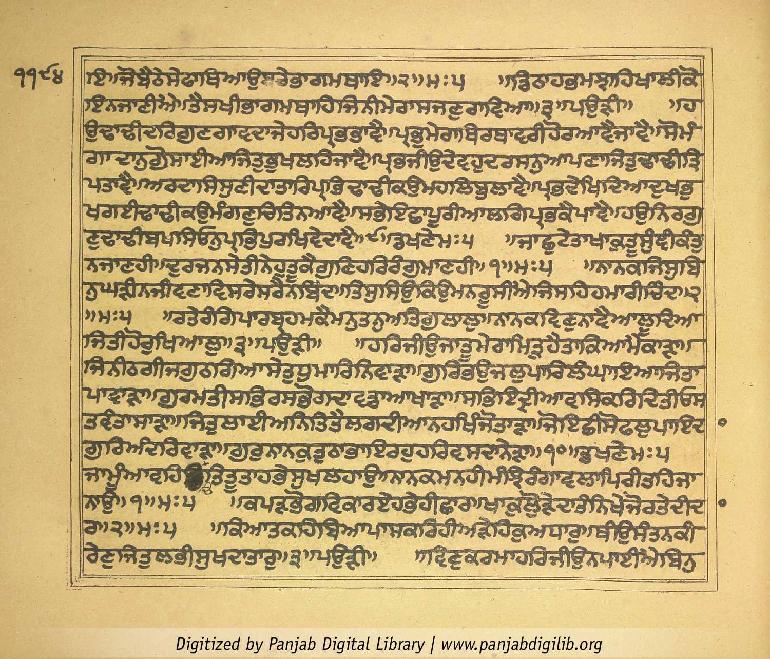 ੧੧੯੪
ਇ॥ਜੋ ਬੈਠੇ ਸੇ ਫਾਥਿਆ ਉਬਰੇ ਭਾਗ ਮਥਾਇ॥੨॥ਮਃ੫ ॥ਡਿਠਾ ਹਭ ਮਝਾਹਿ ਖਾਲੀ ਕੋ
ਇ ਨ ਜਾਣੀਐ॥ਤੈ ਸਖੀ ਭਾਗ ਮਥਾਹਿ ਜਿਨੀ ਮੇਰਾ ਸਜਣੁ ਰਾਵਿਆ॥੩॥ਪਉੜੀ॥ ॥ਹ
ਉ ਢਾਢੀ ਦਰਿ ਗੁਣ ਗਾਵਦਾ ਜੇ ਹਰਿ ਪ੍ਰਭ ਭਾਵੈ॥ਪ੍ਰਭੁ ਮੇਰਾ ਥਿਰ ਥਾਵਰੀ ਹੋਰ ਆਵੈ ਜਾਵੈ॥ਸੋ ਮੰ
ਗਾ ਦਾਨੁ ਗੋੁਸਾਈਆ ਜਿਤੁ ਭੁਖ ਲਹਿ ਜਾਵੈ॥ਪ੍ਰਭ ਜੀਉ ਦੇਵਹੁ ਦਰਸਨੁ ਆਪਣਾ ਜਿਤੁ ਢਾਢੀ ਤ੍ਰਿ
ਪਤਾਵੈ॥ਅਰਦਾਸਿ ਸੁਣੀ ਦਾਤਾਰਿ ਪ੍ਰਭਿ ਢਾਢੀ ਕਉ ਮਹਲਿ ਬੁਲਾਵੈ॥ਪ੍ਰਭ ਦੇਖਿਦਿਆ ਦੁਖ ਭੁ
ਖ ਗਈ ਢਾਢੀ ਕਉ ਮੰਗਣੁ ਚਿਤਿ ਨ ਆਵੈ॥ਸਭੇ ਇਛਾ ਪੂਰੀਆ ਲਗਿ ਪ੍ਰਭ ਕੈ ਪਾਵੈ॥ਹਉ ਨਿਰਗੁ
ਣੁ ਢਾਢੀ ਬਖਸਿਓਨੁ ਪ੍ਰਭਿ ਪੁਰਖਿ ਵੇਦਾਵੈ॥੯॥ਡਖਣੇ ਮਃ੫ ॥ਜਾ ਛੁਟੇ ਤਾ ਖਾਕੁ ਤੂ ਸੁੰਞੀ ਕੰਤੁ
ਨ ਜਾਣਹੀ॥ਦੁਰਜਨ ਸੇਤੀ ਨੇਹੁ ਤੂ ਕੈ ਗੁਣਿ ਹਰਿ ਰੰਗੁ ਮਾਣਹੀ॥੧॥ਮਃ੫ ॥ਨਾਨਕ ਜਿਸੁ ਬਿ
ਨੁ ਘੜੀ ਨ ਜੀਵਣਾ ਵਿਸਰੇ ਸਰੈ ਨ ਬਿੰਦ॥ਤਿਸੁ ਸਿਉ ਕਿਉ ਮਨ ਰੂਸੀਐ ਜਿਸਹਿ ਹਮਾਰੀ ਚਿੰਦ॥੨
॥ਮਃ੫ ॥ਰਤੇ ਰੰਗਿ ਪਾਰਬ੍ਰਹਮ ਕੈ ਮਨੁ ਤਨੁ ਅਤਿ ਗੁਲਾਲੁ॥ਨਾਨਕ ਵਿਣੁ ਨਾਵੈ ਆਲੂਦਿਆ
ਜਿਤੀ ਹੋਰੁ ਖਿਆਲੁ॥੩॥ਪਉੜੀ॥ ॥ਹਰਿ ਜੀਉ ਜਾ ਤੂ ਮੇਰਾ ਮਿਤ੍ਰੁ ਹੈ ਤਾ ਕਿਆ ਮੈ ਕਾੜਾ॥
ਜਿਨੀ ਠਗੀ ਜਗੁ ਠਗਿਆ ਸੇ ਤੁਧੁ ਮਾਰਿ ਨਿਵਾੜਾ॥ਗੁਰਿ ਭਉਜਲੁ ਪਾਰਿ ਲੰਘਾਇਆ ਜਿਤਾ
ਪਾਵਾੜਾ॥ਗੁਰਮਤੀ ਸਭਿ ਰਸ ਭੋਗਦਾ ਵਡਾ ਆਖਾੜਾ॥ਸਭਿ ਇੰਦ੍ਰੀਆ ਵਸਿ ਕਰਿ ਦਿਤੀਓ ਸ
ਤਵੰਤਾ ਸਾੜਾ॥ਜਿਤੁ ਲਾਈਅਨਿ ਤਿਤੈ ਲਗਦੀਆ ਨਹ ਖਿੰਜੋਤਾੜਾ॥ਜੋ ਇਛੀ ਸੋ ਫਲੁ ਪਾਇਦਾ
ਗੁਰਿ ਅੰਦਰਿ ਵਾੜਾ॥ਗੁਰੁ ਨਾਨਕੁ ਤੁਠਾ ਭਾਇਰਹੁ ਹਰਿ ਵਸਦਾ ਨੇੜਾ॥੧੦॥ਡਖਣੇ ਮਃ੫
ਜਾ ਮੂੰ ਆਵਹਿ ਤੂ ਤਾ ਹਭੇ ਸੁਖ ਲਹਾਉ॥ਨਾਨਕ ਮਨ ਹੀ ਮੰਝਿ ਰੰਗਾਵਲਾ ਪਿਰੀ ਤਹਿਜਾ
ਨਾਉ॥੧॥ਮਃ੫ ॥ਕਪੜ ਭੋਗ ਵਿਕਾਰ ਏ ਹਭੇ ਹੀ ਛਾਰ॥ਖਾਕੁ ਲੋੁੜੇਦਾ ਤੰਨਿ ਖੇ ਜੋ ਰਤੇ ਦੀਦਾ
ਰ॥੨॥ਮਃ੫ ॥ਕਿਆ ਤਕਹਿ ਬਿਆ ਪਾਸ ਕਰਿ ਹੀਅੜੇ ਹਿਕੁ ਅਧਾਰੁ॥ਥੀਉ ਸੰਤਨ ਕੀ
ਰੇਣੁ ਜਿਤੁ ਲਭੀ ਸੁਖ ਦਾਤਾਰੁ॥੩॥ਪਉੜੀ॥ ॥ਵਿਣੁ ਕਰਮਾ ਹਰਿ ਜੀਉ ਨ ਪਾਈਐ ਬਿਨੁ
Digitized by Panjab Digital Library | www.panjabdigilib.org